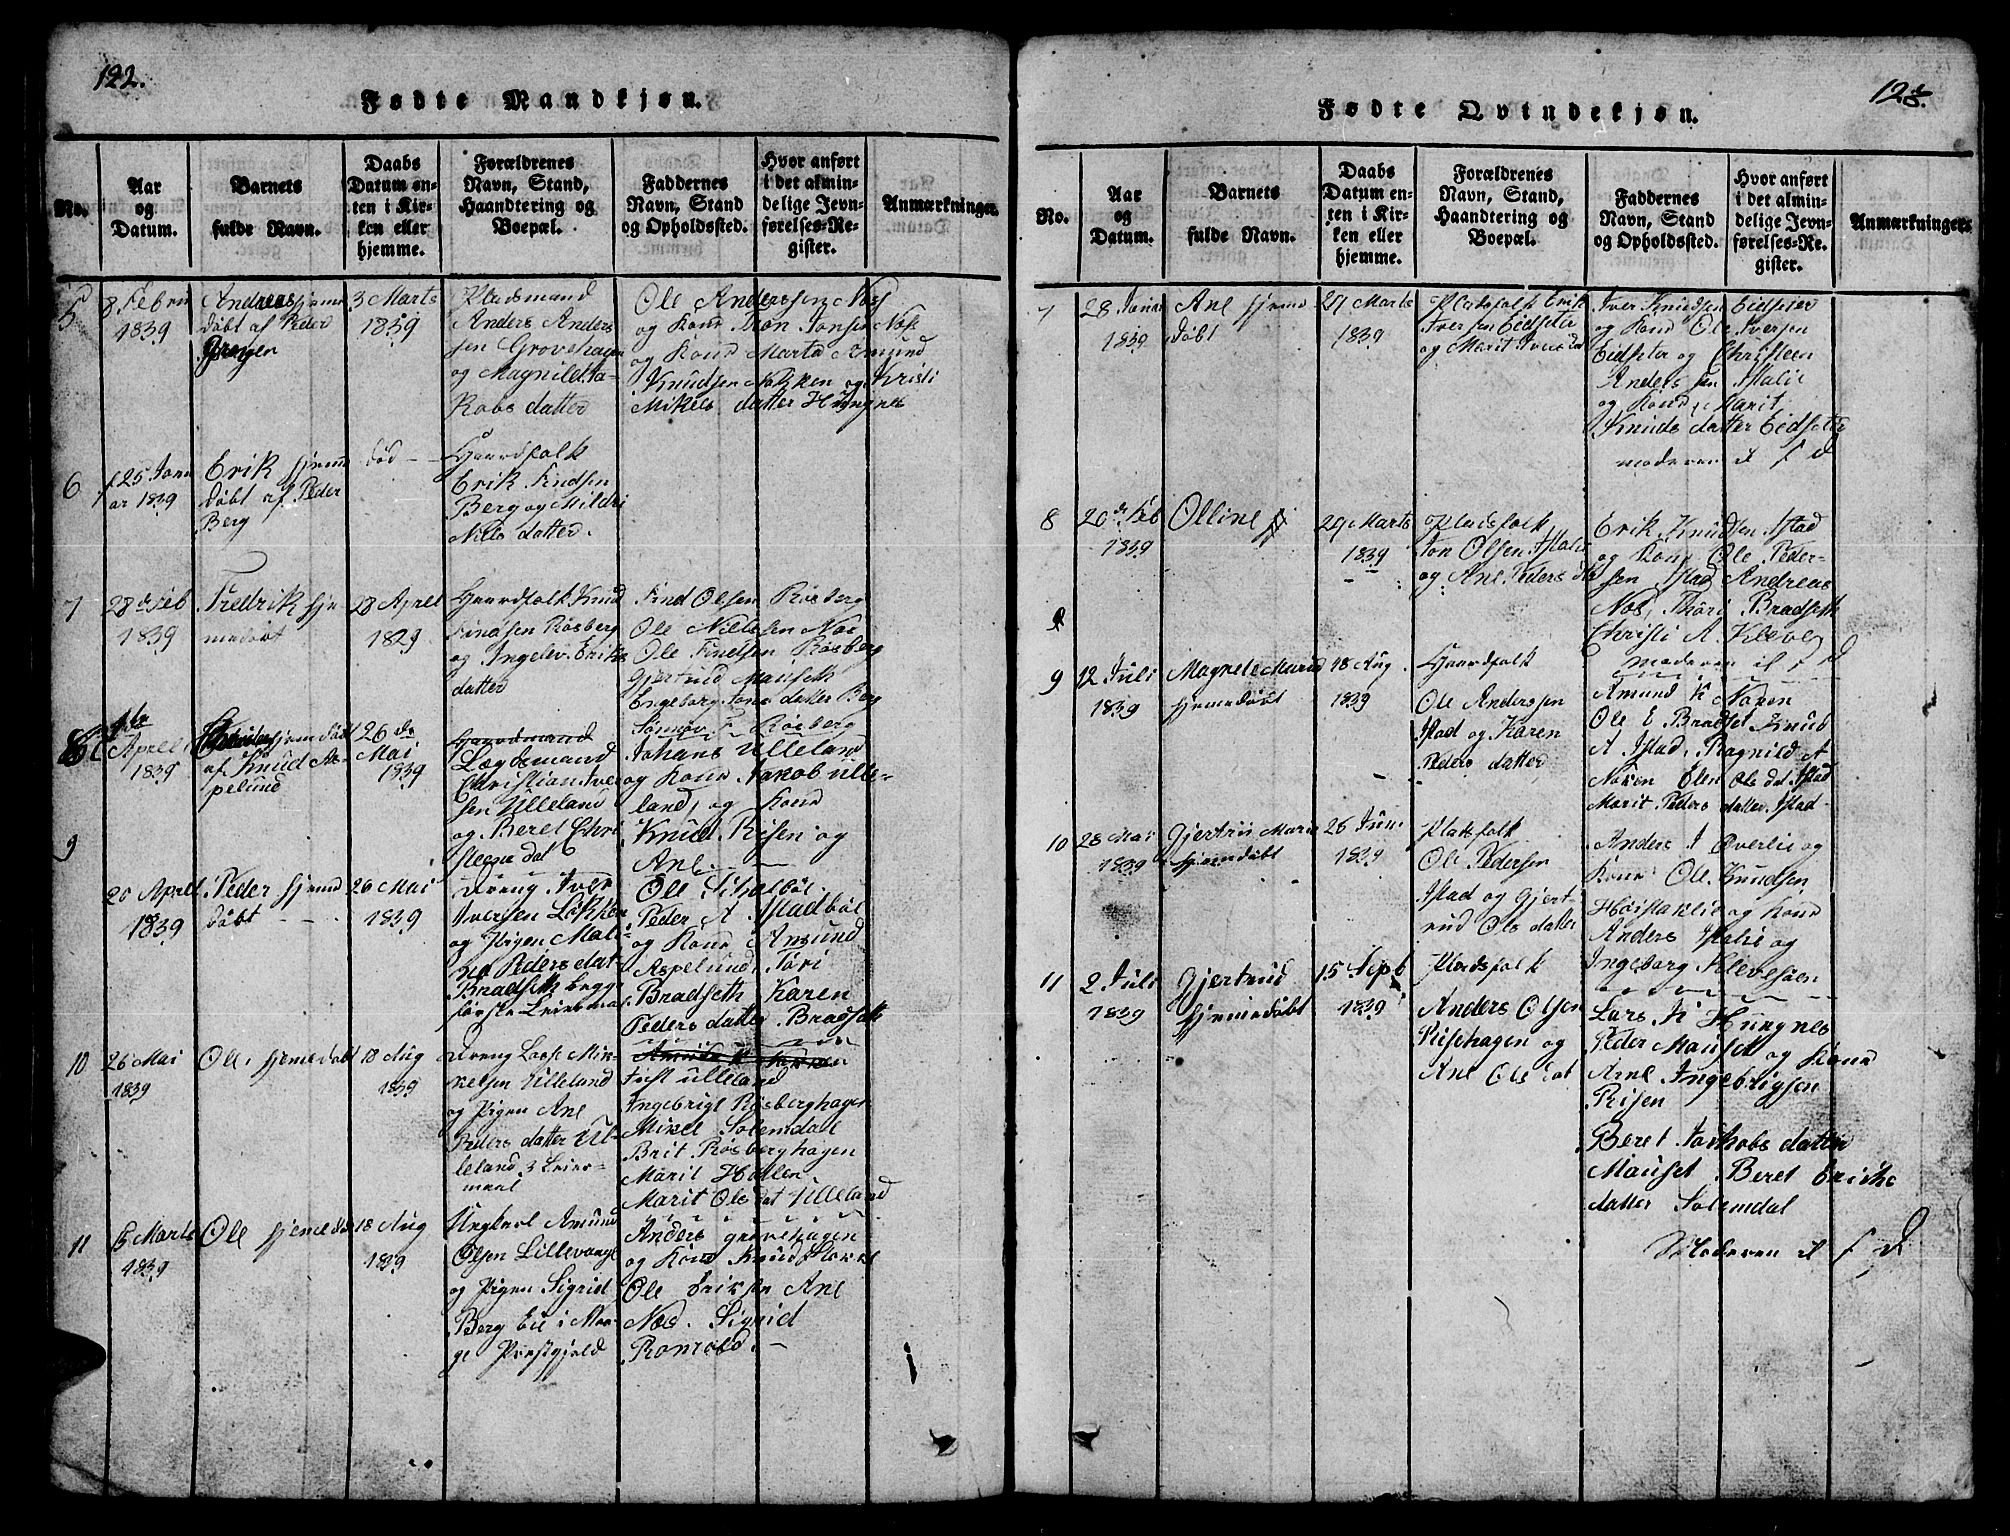 122.
Fødte Mandkjøn.
No.
Aar
og
Datum.
Barnets
fulde Navn.
Daabs
Datum en-
ten i Kir-
ken eller
hjemme.
Forældrenes
Navn, Stand,
Haandtering og
Boepæl.
Faddernes
Navn, Stand
og Opholdssted.
Hvor anført
i det almin-
delige Jevn-
førelses-Re-
gister.
Anmærkninger
5
8 Febru
1839
Andreas hjeme
døbt af Peder
3 Marts
1839
Pladsmand
Anders Anders
sen Grovehagen
og Magnilet Ja-
kobs datter
Ole Anderssen Nos
og Kone Jon Jonsen Nos
og Kone Marta Amund
Knudsen Nokken og Kristi
Mikels datter Hungnes
6
25 Janu
ar 1839
Erik hjeme
døbt af Peder
Berg
død
Gaardfolk
Erik Findsen
Berg og Mildri
Niels datter.
7
28de Feb
1839
Fredrik hje
medøbt
28 April
1829
Gaardfolk Knud
Findsen Røsberg
og Ingelev Eriks
datter
Find Olsen Røsberg
Ole Nillesen Nos
Ole Findsen Røsberg
Gjertrud Mauseth
Engeborg Jons datter Berg
Røsberg
April
1839
hjemdøbt
af Knud As-
pelund
26 de
Mai
1839
Gaardmand
Lægdsmand
Christian Iver
sen Ulleland
og Beret Chri
steene dat
Johans Ulleland
og Kone Jakob Ulle-
land, og Kone
Knud Risen og
Ane.
9
20 April
1839
Peder hjem
døbt
26 Mai
1839
Dreng Iver
Iversen Løkken
og Pigen Mali
na Peders dat
Bradseth begge
første Leiermaal
Ole Istadbøl.
Peder A Istadbøl
og Kone Amund
Aspelund, Tøri
Bradseth Karen
Peders datter Bradseth
10
26 Mai
1839
Ole hjemedøbt
18 Aug
1839
Dreng Lasse Mik-
kelsen Ulleland
og Pigen Ane
Peders datter Ul-
leland 3 Leier-
maal
Just Ulleland
Ingebrigt Røsberghagen
Mikel Solemdal
Brit Røsberghagen
Marit Hollen
Marit Ols dat Ulleland
11
5 Marts
1839
Ole hjemedøbt
18 Aug
1839
Ungkarl Amund
Olsen Lillevange
og Pigen Sigrid
Berg Eie i Mo-
ge Prestgjeld
Anders Grovehagen
og Kone Knud
Ole Eriksen Ane
Næs. Sigrid

123.
Fødte Qvindekjøn.
No.
Aar
og
Datum.
Barnets
fulde Navn.
Daabs
Datum en-
ten i Kir-
ken eller
hjemme.
Forældrenes
Navn, Stand,
Haandtering og
Boepæl.
Faddernes
Navn, Stand
og Opholdssted.
Hvor anført
i det almin-
delige Jevn-
førelses-Re-
gister.
Anmærkninger
7
28 Janu
1839
Ane hjeme
døbt
29 Marts
1839
Pladsfolk Erik
Iversen Eidseter
og Marit Ivers dat
Iver Knudsen Eidseter
og Kone Ole Iversen
Eidseter og Christeen
Anders sen Istalie
og Kone, Marit
Knuds datter Eidseter
moderen il f d
8
20de Feb
1839
Olline
29 Marts
1839
Pladsfolk
Jon Olsen Istalie
og Ane Peders dat
Erik Knudsen Istad
og Kone Ole Peder-
sen Istad Andreas
Nos, Thøri Bradseth
Christi A. Kleve
moderen il f d
9
9
12 Juli
1839
Magnete Maria
hjemedøbt
18 Aug
1839
Gaardfolk
Ole Anderssen
Istad og Karen
Peders datter
Amund K Noren
Ole E Bradset Knud
A Istad, Ragnild A
Noren Elen Ols dat Istad
Marit Peders datter Istad
10
28 Mai
1839
Gjertrii Marie
hjemdøbt
26 Juni
1839
Pladsfolk
Ole Pedersen
Istad og Gjert-
rud Ols datter
Anders I Øverlie og
Kone Ole Knudsen
Høistaklie og Kone
Anders Istalie og
Ingeborg Klevesøen
11
2 Juli
1839
Gjertrud
hjemmedøbt
15 Septb
1839
Pladsfolk
Anders Olsen
Risehagen og
Ane Ols dat
Lars K Hungnes
Peder Mauset og Kone
Arne Ingebrigsen
Risen
Beret Jakobs datter
Mauset. Beret Eriks
datter Solemdal
Moderen il f d